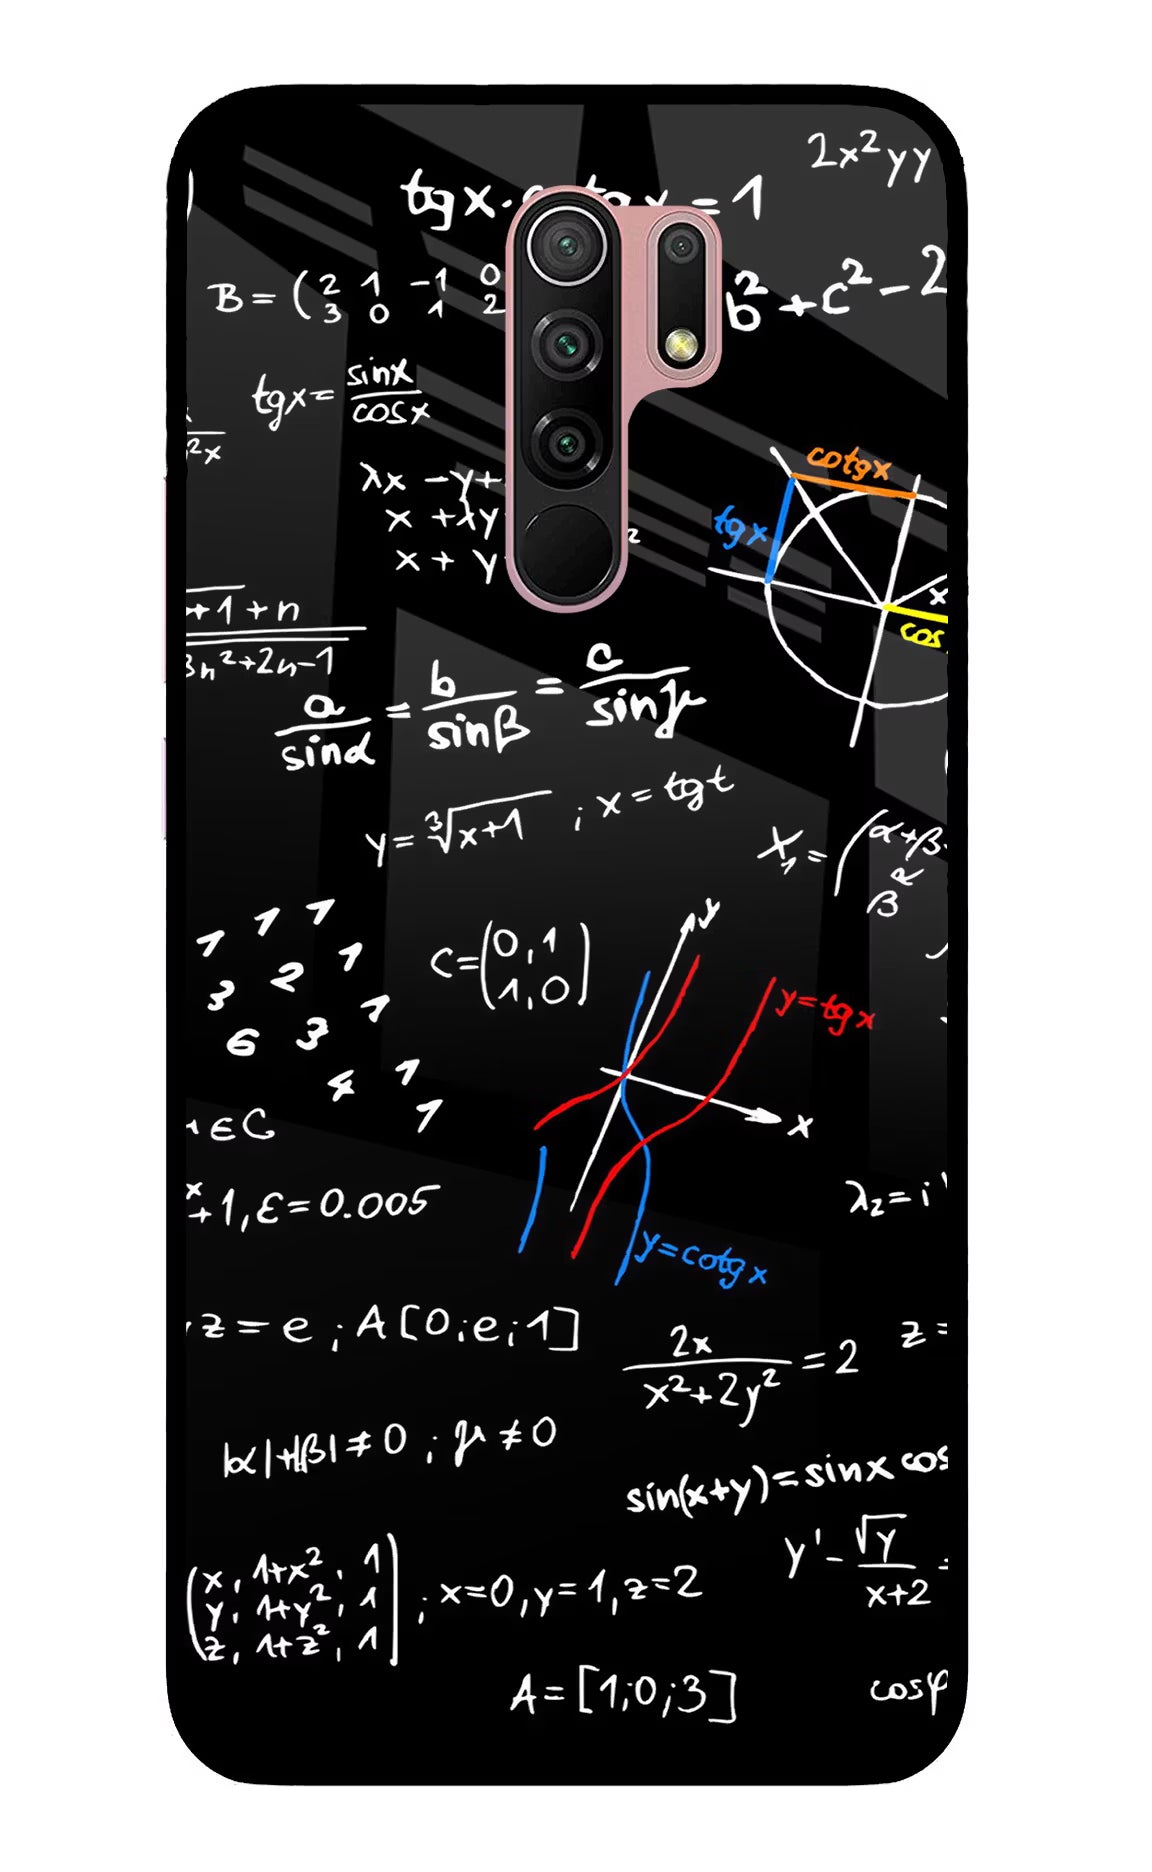 2x²yy
tgx·cotgx=1
B=(2 1 -1 0
3 0 1 2
b²+c²-2
tgx=sinx/cosx
²x
cotgx
λx -y+
x +λy
x + y
²
tgx
x
cos
+1+n
3n²+2n-1
a/sinα = b/sinβ = c/sinγ
y=∛x+1 ; x=tgt
X₁=(α+β
β α
1 1 1
3 2 1
6 3 1
4 1
1
C=(0,1
1,0)
y
y=tgx
x
∈C
x
+1, ε=0.005
λ₂=i
y=cotgx
z=e ; A[0;e;1]
2x/x²+2y²=2
z=
|α|+|β|≠0 ; μ≠0
sin(x+y)=sinx cos
y'-√y/x+2
(x, 1+x², 1
y, 1+y², 1
z, 1+z², 1) ; x=0, y=1, z=2
A=[1;0;3]
cosφ